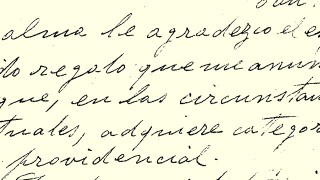 alma le agradezco el es
do regalo que me anun
que, en las circunstan
tuales, adquiere categor
providencial.